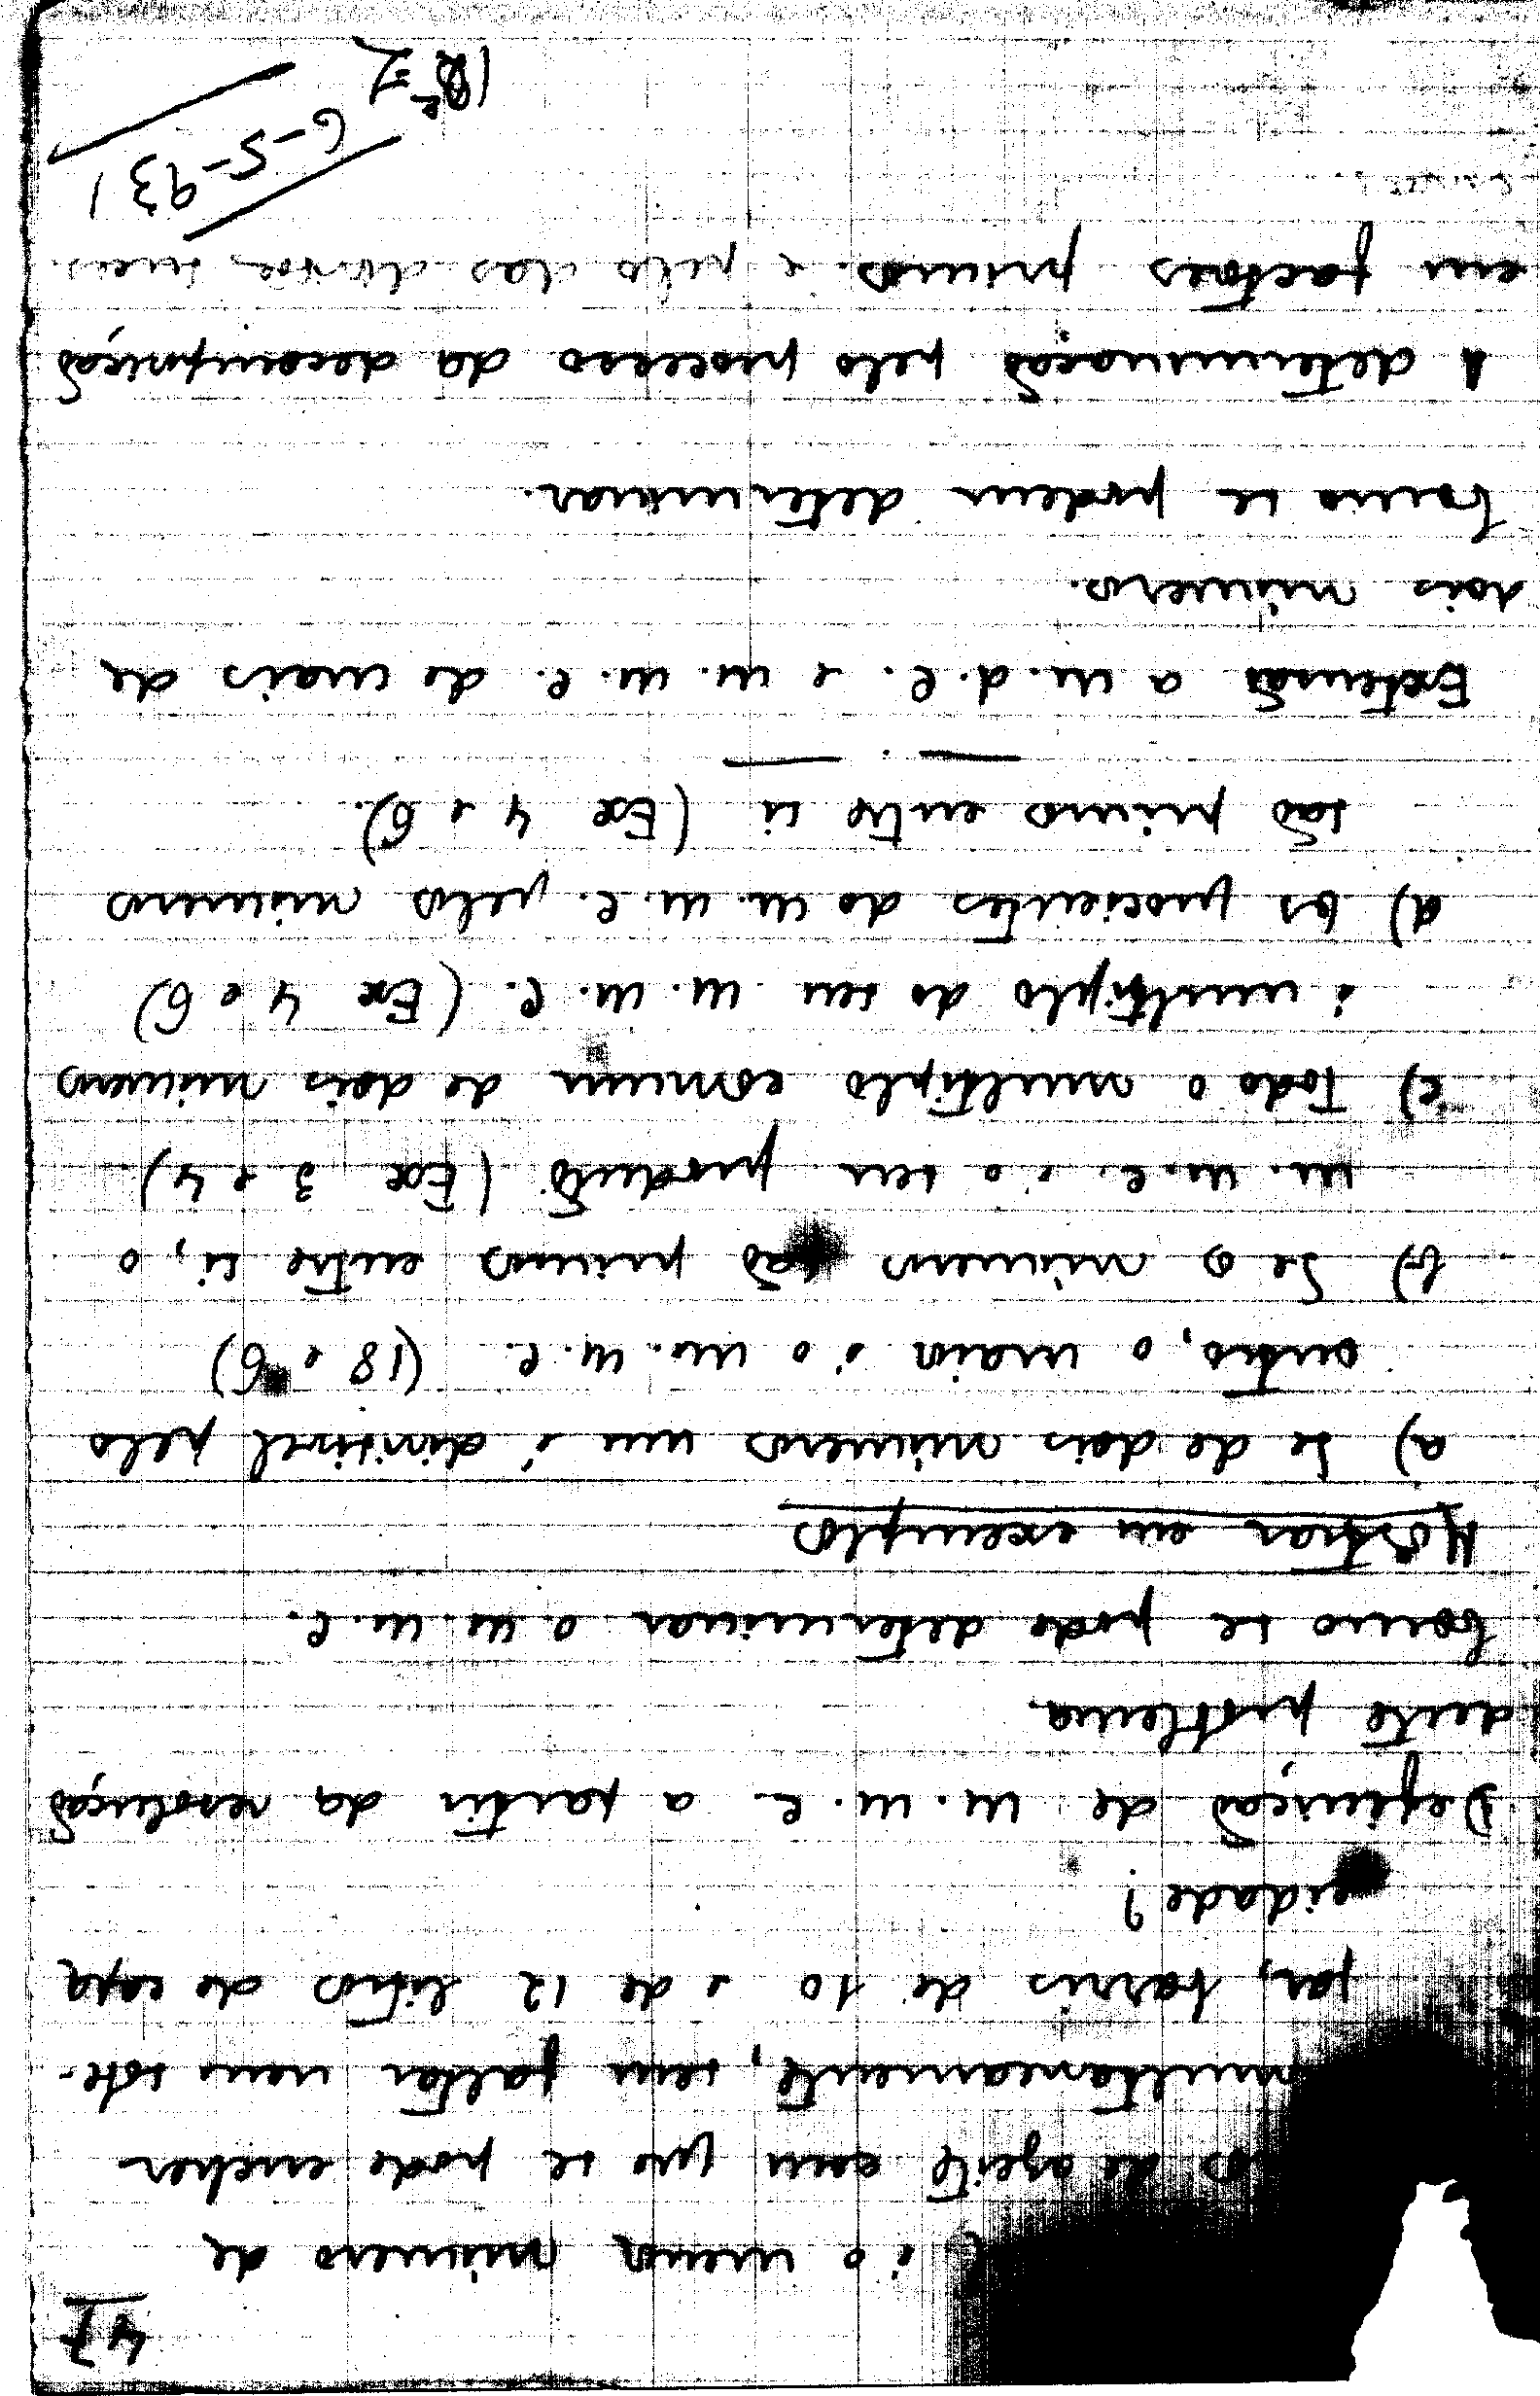 47
é o menor número de
de azeite com que se pode encher
simultaneamente, sem faltar nem sobe-
jar, barris de 10 e de 12 litros de capa
cidade?
Definição de m. m. c. a partir da resolução
deste problema.
Como se pode determinar o m. m. c.
Mostrar em exemplos
a) Se de dois números um é divisível pelo
outro, o maior é o m. m. c. (18 e 6)
b) Se os números são primos entre si, o
m. m. c. é o seu produto (Ex 3 e 4)
c) Todo o multiplo comum de dois números
é multiplo do seu m. m. c. (Ex 4 e 6)
d) Os quocientes do m. m. c. pelos números
são primos entre si (Ex 4 e 6).
Extensão a m. d. c. e m. m. c. de mais de
dois números.
Como se podem determinar.
A determinação pelo processo da decomposição
em factores primos e pelo das
6-5-931